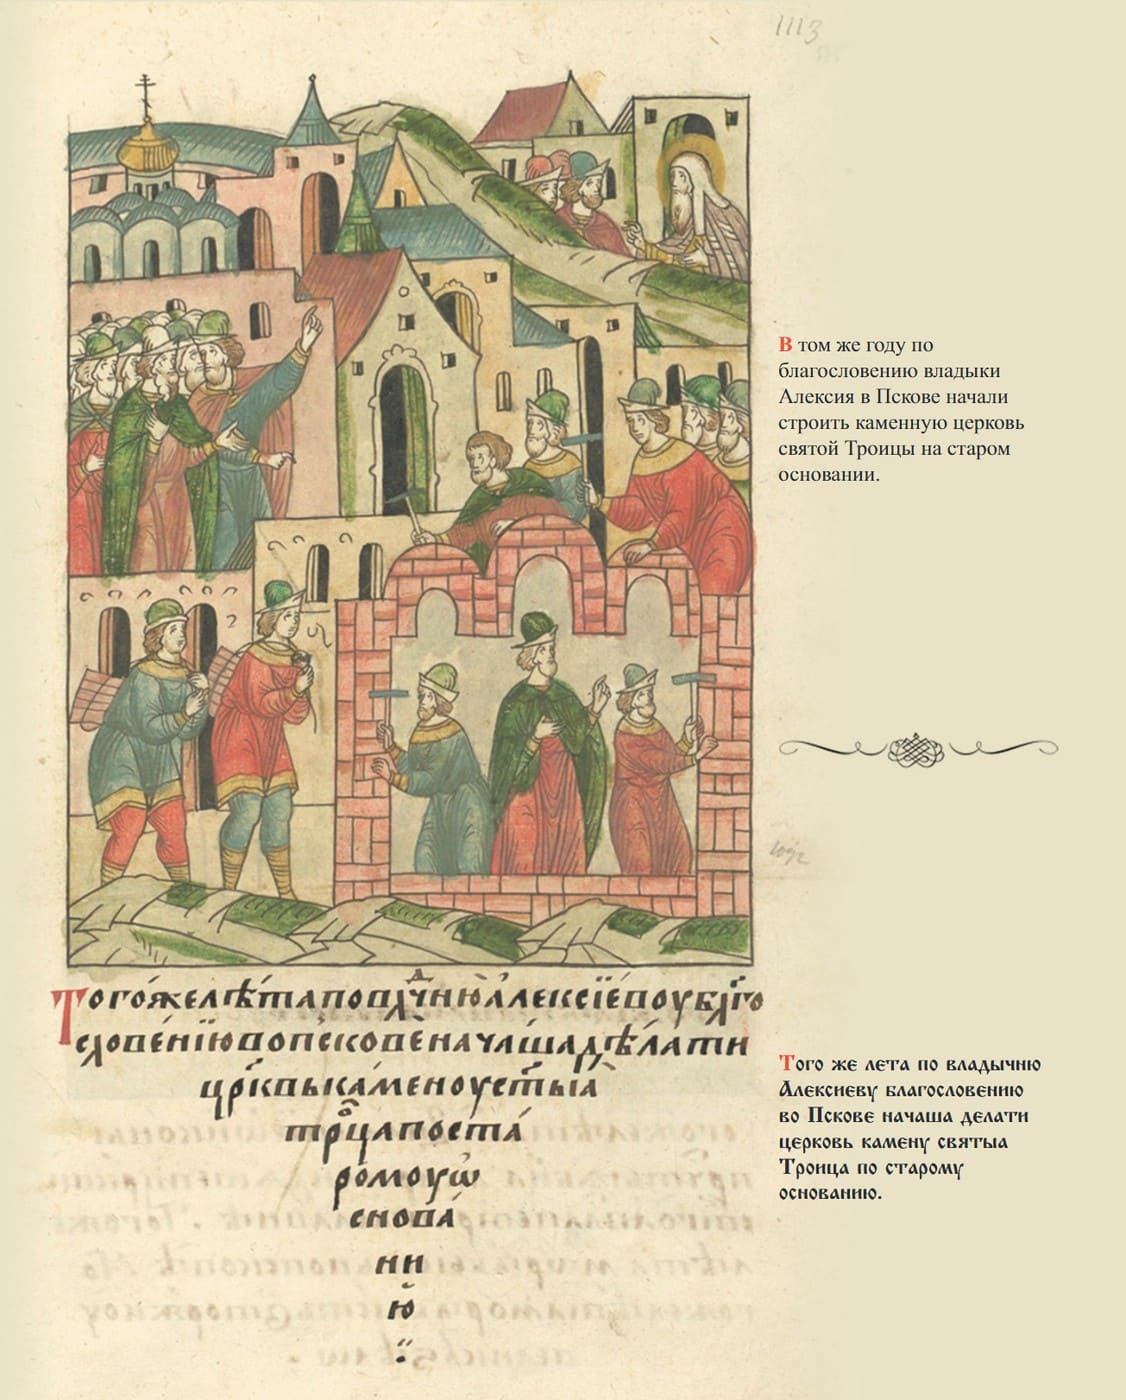 1113
В том же году по
благословению владыки
Алексия в Пскове начали
строить каменную церковь
святой Троицы на старом
основании.
Тогожелѣтаповлⷣчнюалеѯїевоублг҃о
словенїювопсковеначашадѣлати
цр҃ковькаменоуст҃ыꙗ
трⷪ҇цапоста
ромоуѡ
снова
ни
ю
Того же лета по владычню
Алексиеву благословению
во Пскове начаша делати
церковь камену святыа
Троица по старому
основанию.